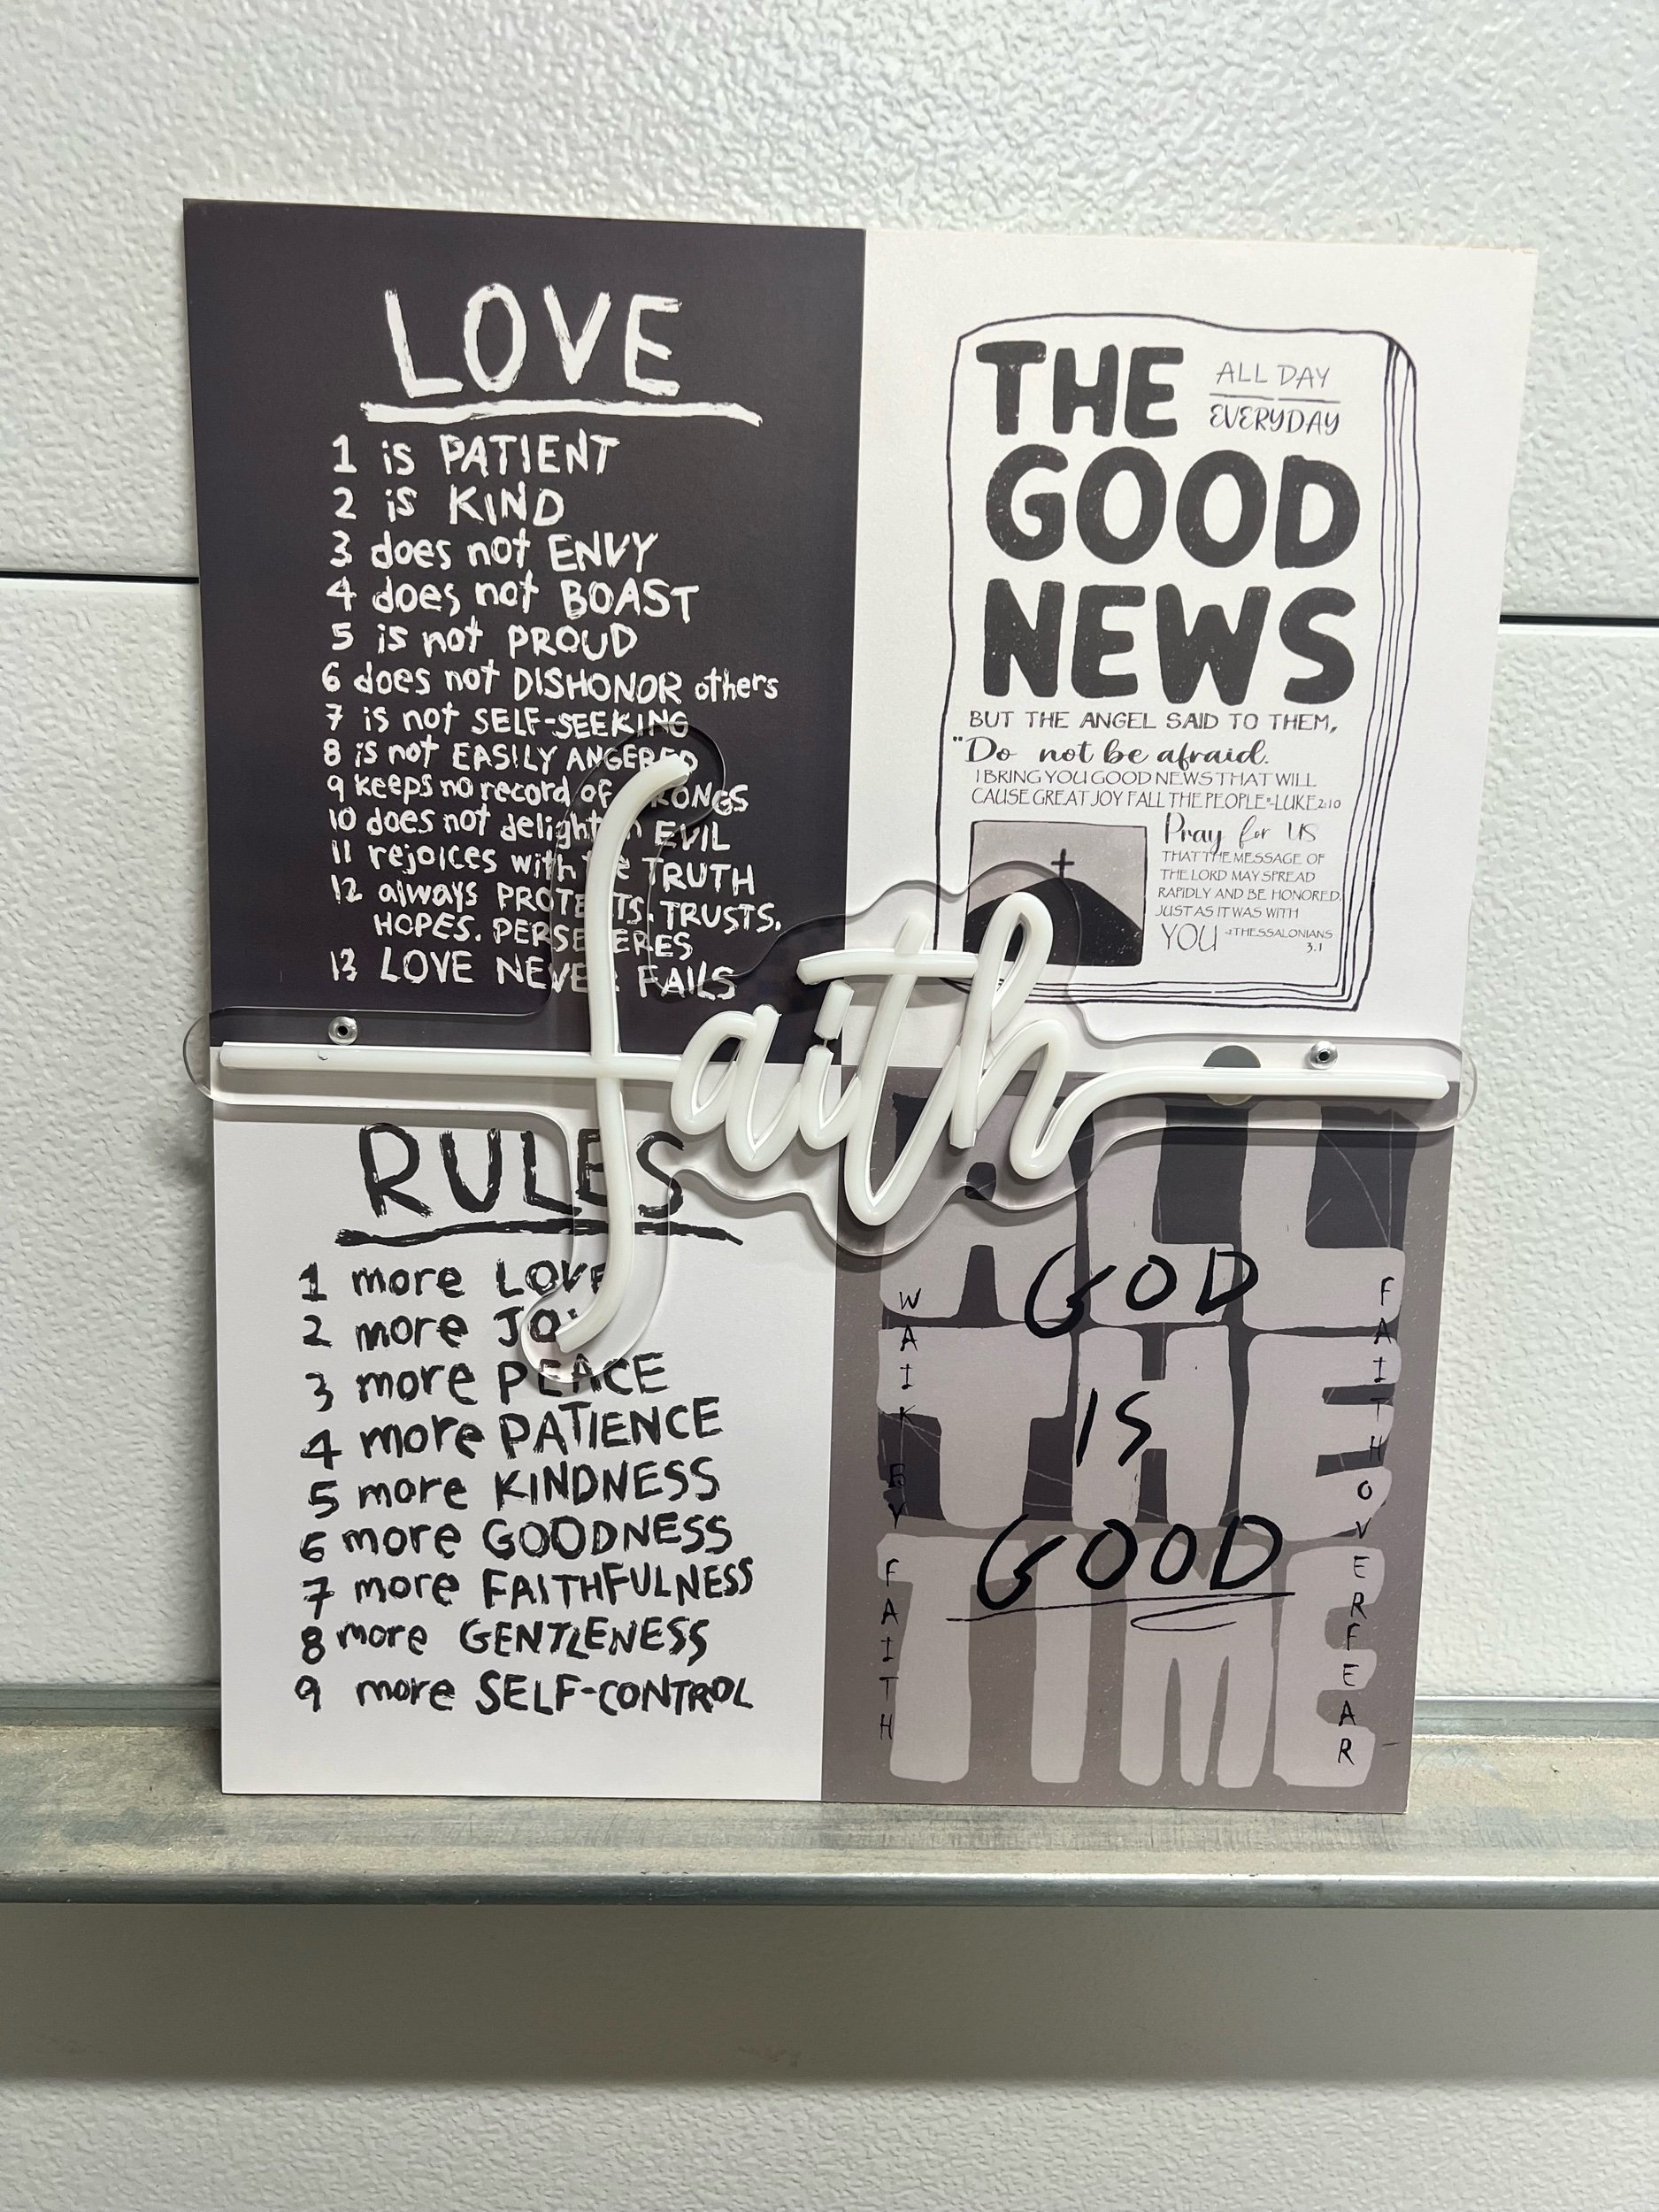 LOVE
1 is PATIENT
2 is KIND
3 does not ENVY
4 does not BOAST
5 is not PROUD
6 does not DISHONOR others
7 is not SELF-SEEKING
8 is not EASILY ANGERED
9 keeps no record of WRONGS
10 does not delight in EVIL
11 rejoices with the TRUTH
12 always PROTECTS. TRUSTS.
HOPES. PERSEVERES
13 LOVE NEVER FAILS
THE
GOOD
NEWS
ALL DAY
EVERYDAY
BUT THE ANGEL SAID TO THEM,
"Do not be afraid.
I BRING YOU GOOD NEWS THAT WILL
CAUSE GREAT JOY FALL THE PEOPLE"-LUKE 2:10
Pray for US
THAT THE MESSAGE OF
THE LORD MAY SPREAD
RAPIDLY AND BE HONORED,
JUST AS IT WAS WITH
YOU -2 THESSALONIANS
3.1
faith
RULES
1 more LOVE
2 more JOY
3 more PEACE
4 more PATIENCE
5 more KINDNESS
6 more GOODNESS
7 more FAITHFULNESS
8 more GENTLENESS
9 more SELF-CONTROL
ALL
THE
TIME
GOD
IS
GOOD
WALK BY FAITH
FAITH OVER FEAR